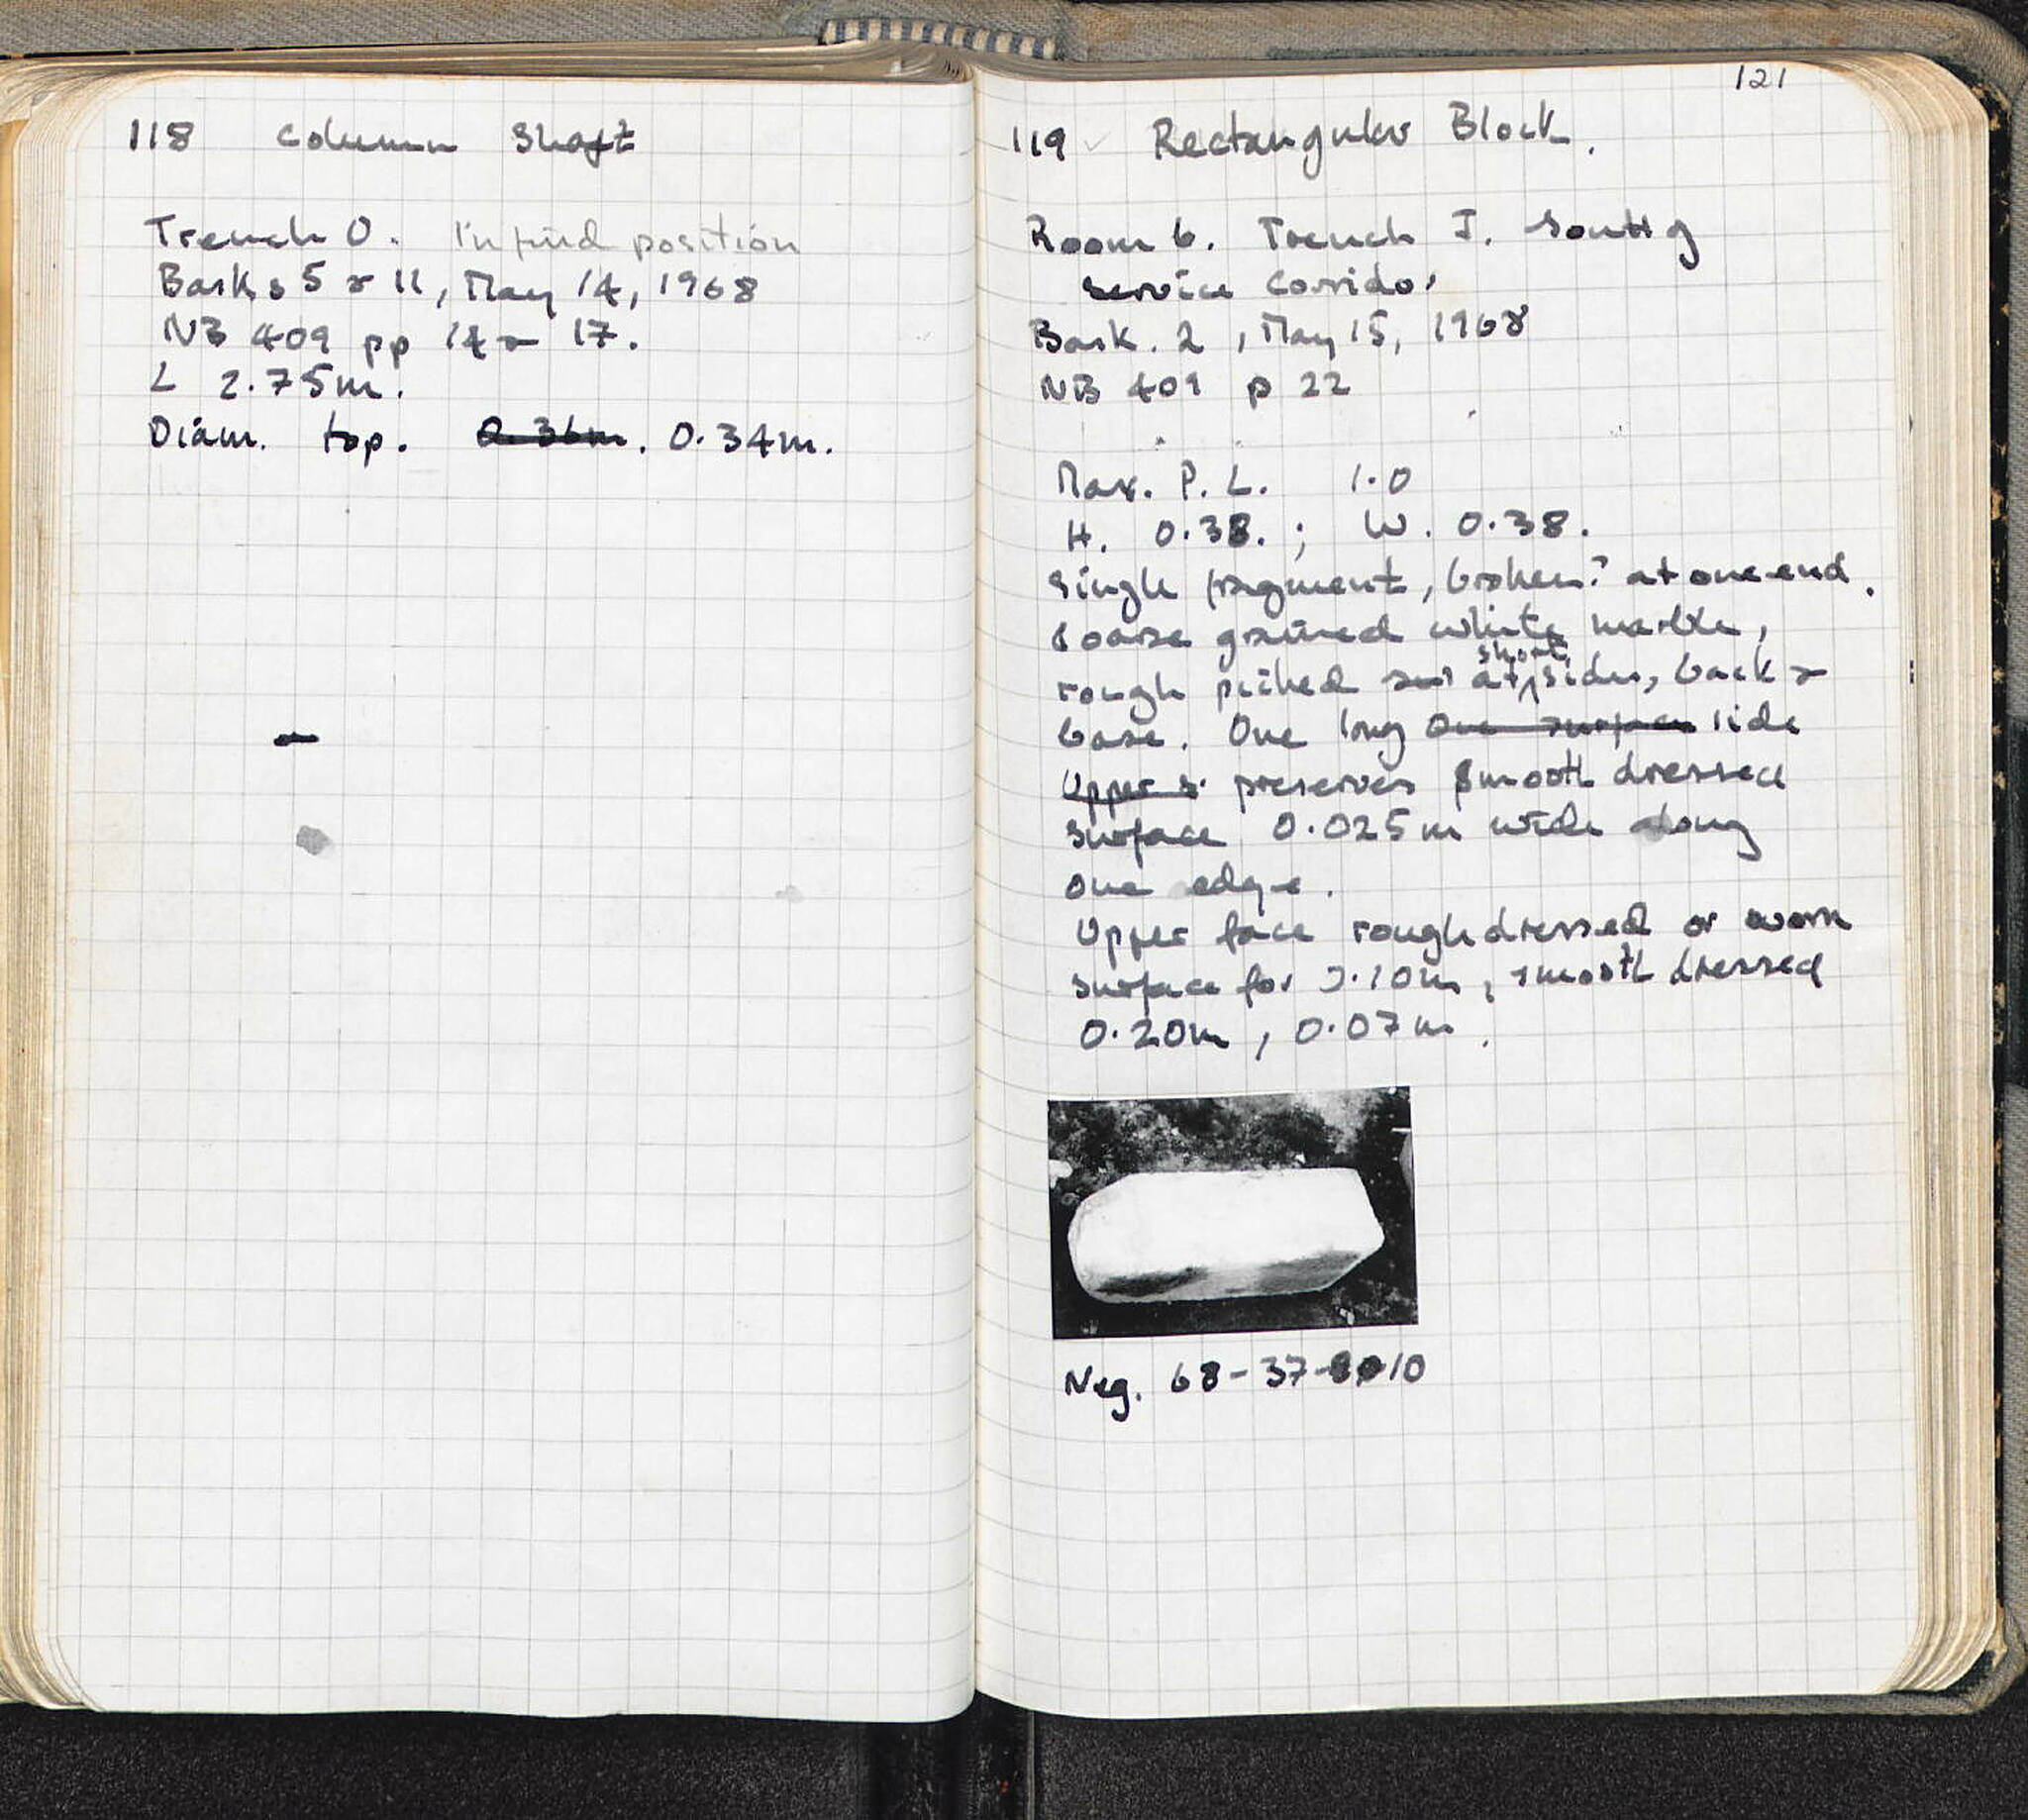 118 Column Shaft
Trench O. In find position
Basks 5 & 11, May 14, 1968
NB 409 pp 14 & 17.
L 2.75m.
Diam. top. 0.36m. 0.34m.
121
119 Rectangular Block.
Room 6. Trench J. South of
service corridor
Bask. 2, May 15, 1968
NB 409 p 22
Max. P. L. 1.0
H. 0.38. ; W. 0.38.
Single fragment, broken? at one end.
Coarse grained white marble,
rough picked at short sides, back &
base. One long One surface side
Upper s. preserves smooth dressed
surface 0.025m wide along
one edge.
Upper face rough dressed or worn
surface for 0.10m, smooth dressed
0.20m, 0.07m.
Neg. 68-37-10